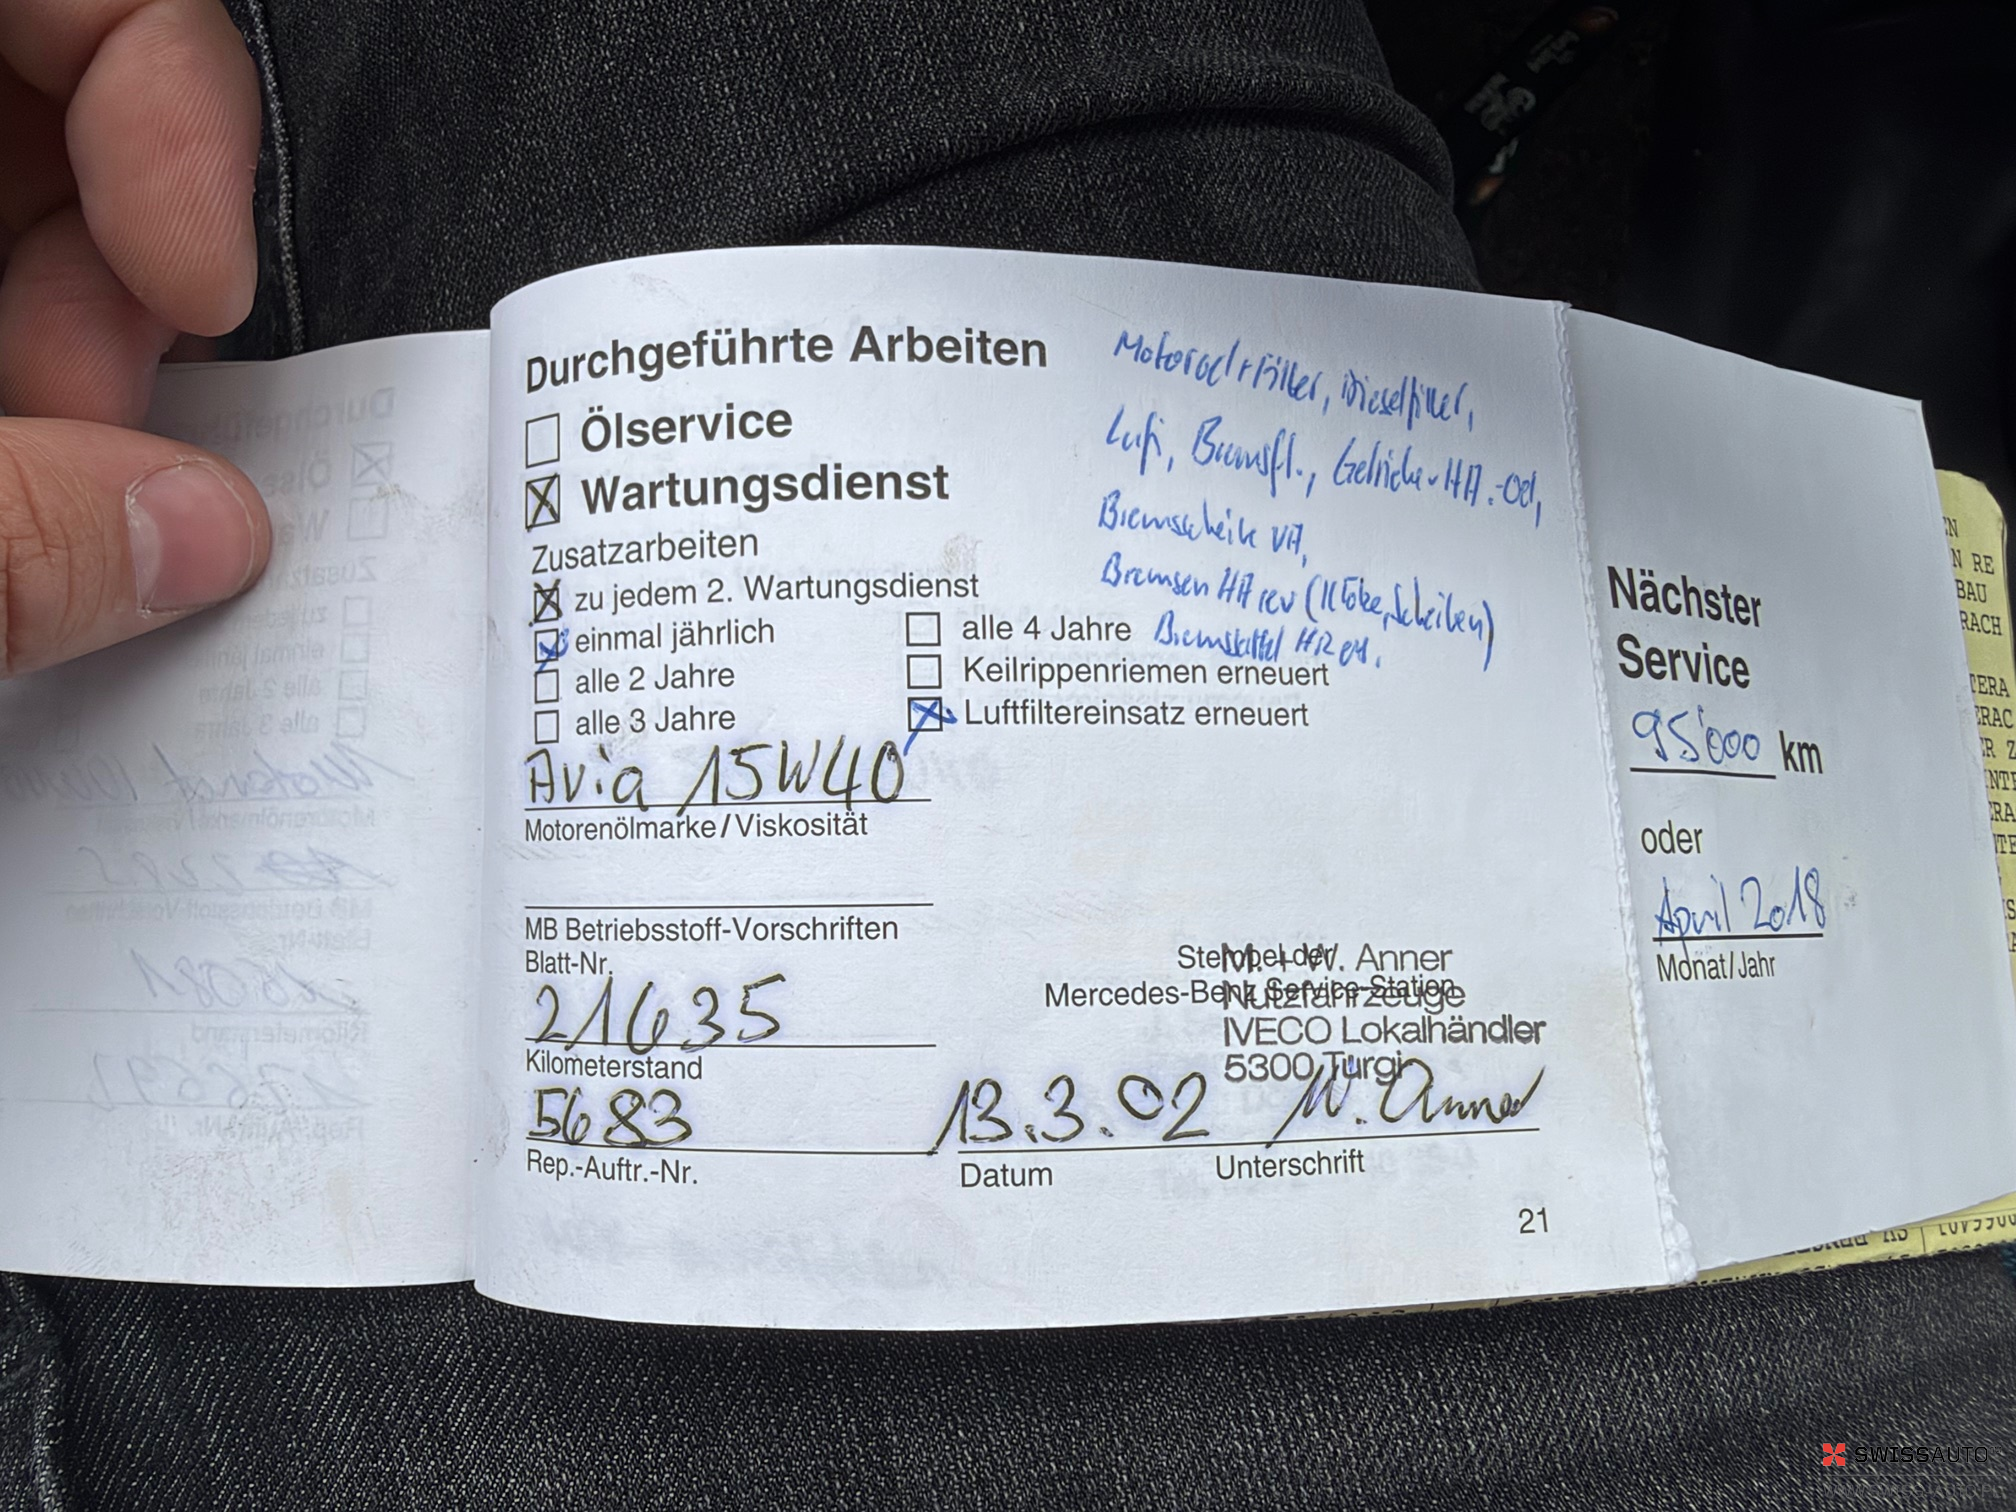 Durchgeführte Arbeiten
Ölservice
Wartungsdienst
Zusatzarbeiten
zu jedem 2. Wartungsdienst
einmal jährlich
alle 2 Jahre
alle 3 Jahre
alle 4 Jahre
Keilrippenriemen erneuert
Luftfiltereinsatz erneuert
Motoroel+Filter, Dieselfilter,
Lufi, Bremsfl., HA.-Oel,
Bremsscheibe VA,
Bremsen HA rev (Klötze, Scheiben)
Bremssattel HR
Avia 15W40
Motorenölmarke/Viskosität
MB Betriebsstoff-Vorschriften
Blatt-Nr.
21635
Kilometerstand
5683
Rep.-Auftr.-Nr.
Stempel der
Mercedes-Benz Service-Station
M. + W. Anner
Nutzfahrzeuge
IVECO Lokalhändler
5300 Turgi
13.3.02 W. Anner
Datum
Unterschrift
21
Nächster
Service
95'000 km
oder
April 2018
Monat/Jahr
SWISSAUTO